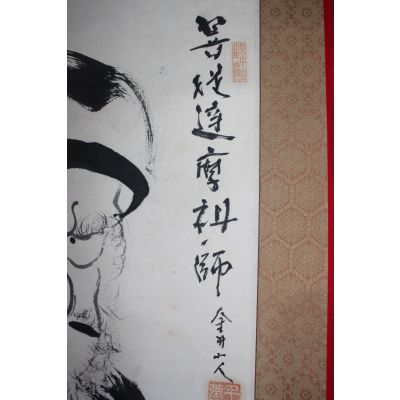 菩提達摩祖師
金井山人